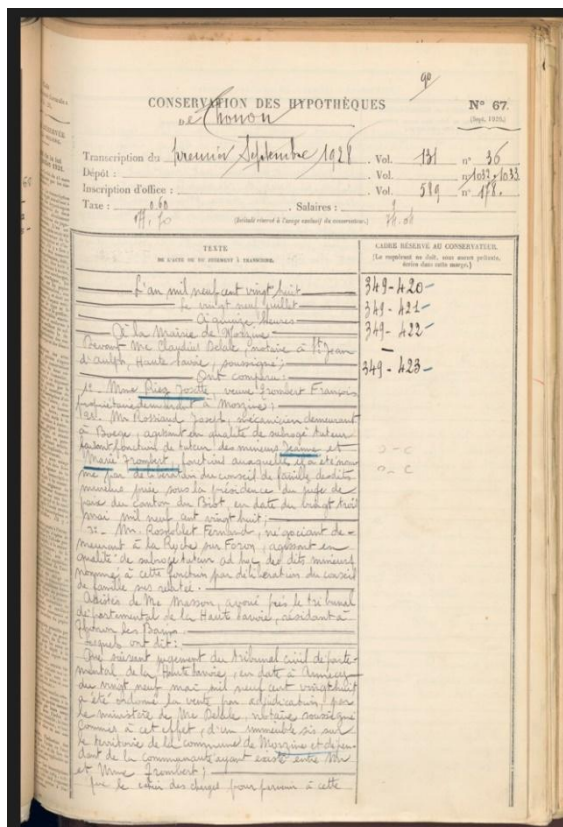 90
CONSERVATION DES HYPOTHÈQUES
N° 67.
de Thonon
(Sept. 1920.)
Transcription du premier Septembre 1928 Vol. 131 n° 36
Dépôt : Vol. n° 1032-1033
Inscription d'office : Vol. 589 n° 178.
Taxe : 0.60 Salaires :
TEXTE
DE L'ACTE OU DU JUGEMENT À TRANSCRIRE.
CADRE RÉSERVÉ AU CONSERVATEUR.
(Le requérant ne doit, sous aucun prétexte,
écrire dans cette marge.)
349-420
349-421
349-422
349-423
L'an mil neuf cent vingt huit
le vingt neuf juillet
À quinze heures
À la Mairie de Morzine
Devant Me Claudius Delale, notaire à St Jean
d'Aulph, Haute Savoie, soussigné;
Ont comparu:
1° Mme Riez Josette, veuve Trombert François
propriétaire demeurant à Morzine;
Mr Rossiaud Joseph, mécanicien demeurant
à Boege, agissant en qualité de subrogé tuteur
faisant fonctions de tuteur des mineurs Jeanne et
Marie Trombert, fonctions auxquelles il a été nom-
mé par délibération du conseil de famille desdits
mineurs prise sous la présidence du juge de
paix du Canton du Biot, en date du vingt trois
mai mil neuf cent vingt huit;
3° Mr. Rossiollet Fernand, négociant de-
meurant à la Roche sur Foron, agissant en
qualité de subrogé tuteur ad hoc des dits mineurs
nommé à cette fonction par délibération du conseil
de famille sus relatée.
Assistés de Me Masson, avoué près le tribunal
départemental de la Haute Savoie, résidant à
Thonon les Bains
Lesquels ont dit:
Que suivant jugement du tribunal civil départe-
mental de la Haute Savoie, en date à Annecy
du vingt neuf mai mil neuf cent vingt huit
a été ordonné la vente par adjudication, par
le ministère de Me Delale, notaire soussigné
commis à cet effet, d'un immeuble sis sur
le territoire de la commune de Morzine et dépen-
dant de la communauté ayant existé entre Mr
et Mme Trombert;
Que le cahier des charges pour parvenir à cette